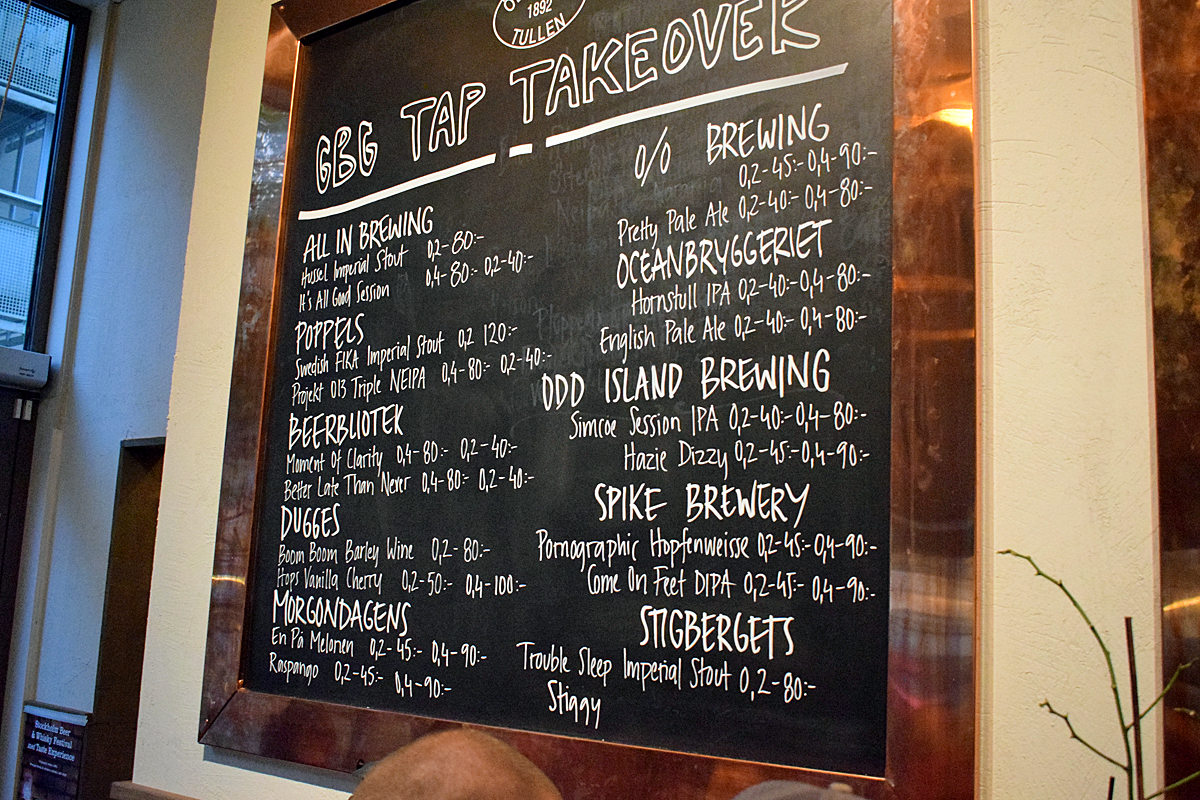 1892
TULLEN
GBG TAP TAKEOVER
ALL IN BREWING
Hussel Imperial Stout 0,2-80:-
It's All Good Session 0,4-80:- 0,2-40:-
POPPELS
Swedish FIKA Imperial Stout 0,2 120:-
Projekt 013 Triple NEIPA 0,4-80:- 0,2-40:-
BEERBLIOTEK
Moment Of Clarity 0,4-80:- 0,2-40:-
Better Late Than Never 0,4-80:- 0,2-40:-
DUGGES
Boom Boom Barley Wine 0,2-80:-
Hops Vanilla Cherry 0,2-50:- 0,4-100:-
MORGONDAGENS
En På Melonen 0,2-45:- 0,4-90:-
Raspango 0,2-45:- 0,4-90:-
0/0 BREWING
0,2-45:- 0,4-90:-
Pretty Pale Ale 0,2-40:- 0,4-80:-
OCEANBRYGGERIET
Hornstull IPA 0,2-40:- 0,4-80:-
English Pale Ale 0,2-40:- 0,4-80:-
ODD ISLAND BREWING
Simcoe Session IPA 0,2-40:- 0,4-80:-
Hazie Dizzy 0,2-45:- 0,4-90:-
SPIKE BREWERY
Pornographic Hopfenweisse 0,2-45:- 0,4-90:-
Come On Feet DIPA 0,2-45:- 0,4-90:-
STIGBERGETS
Trouble Sleep Imperial Stout 0,2-80:-
Stiggy
Stockholm Beer
& Whisky Festival
and Taste Experience